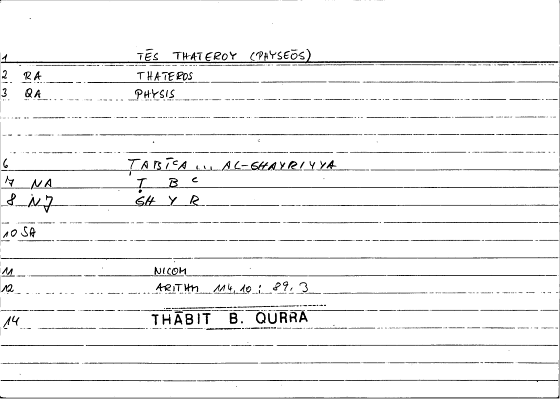 1 TĒS THATEROY (PHYSEŌS)
2 RA THATEROS
3 QA PHYSIS
6 ṬABĪcA ... AL-GHAYRIYYA
7 NA Ṭ B c
8 NJ GH Y R
10 SA
11 NICOM
12 ARITHM 114,10 : 89,3
14 THĀBIT B. QURRA